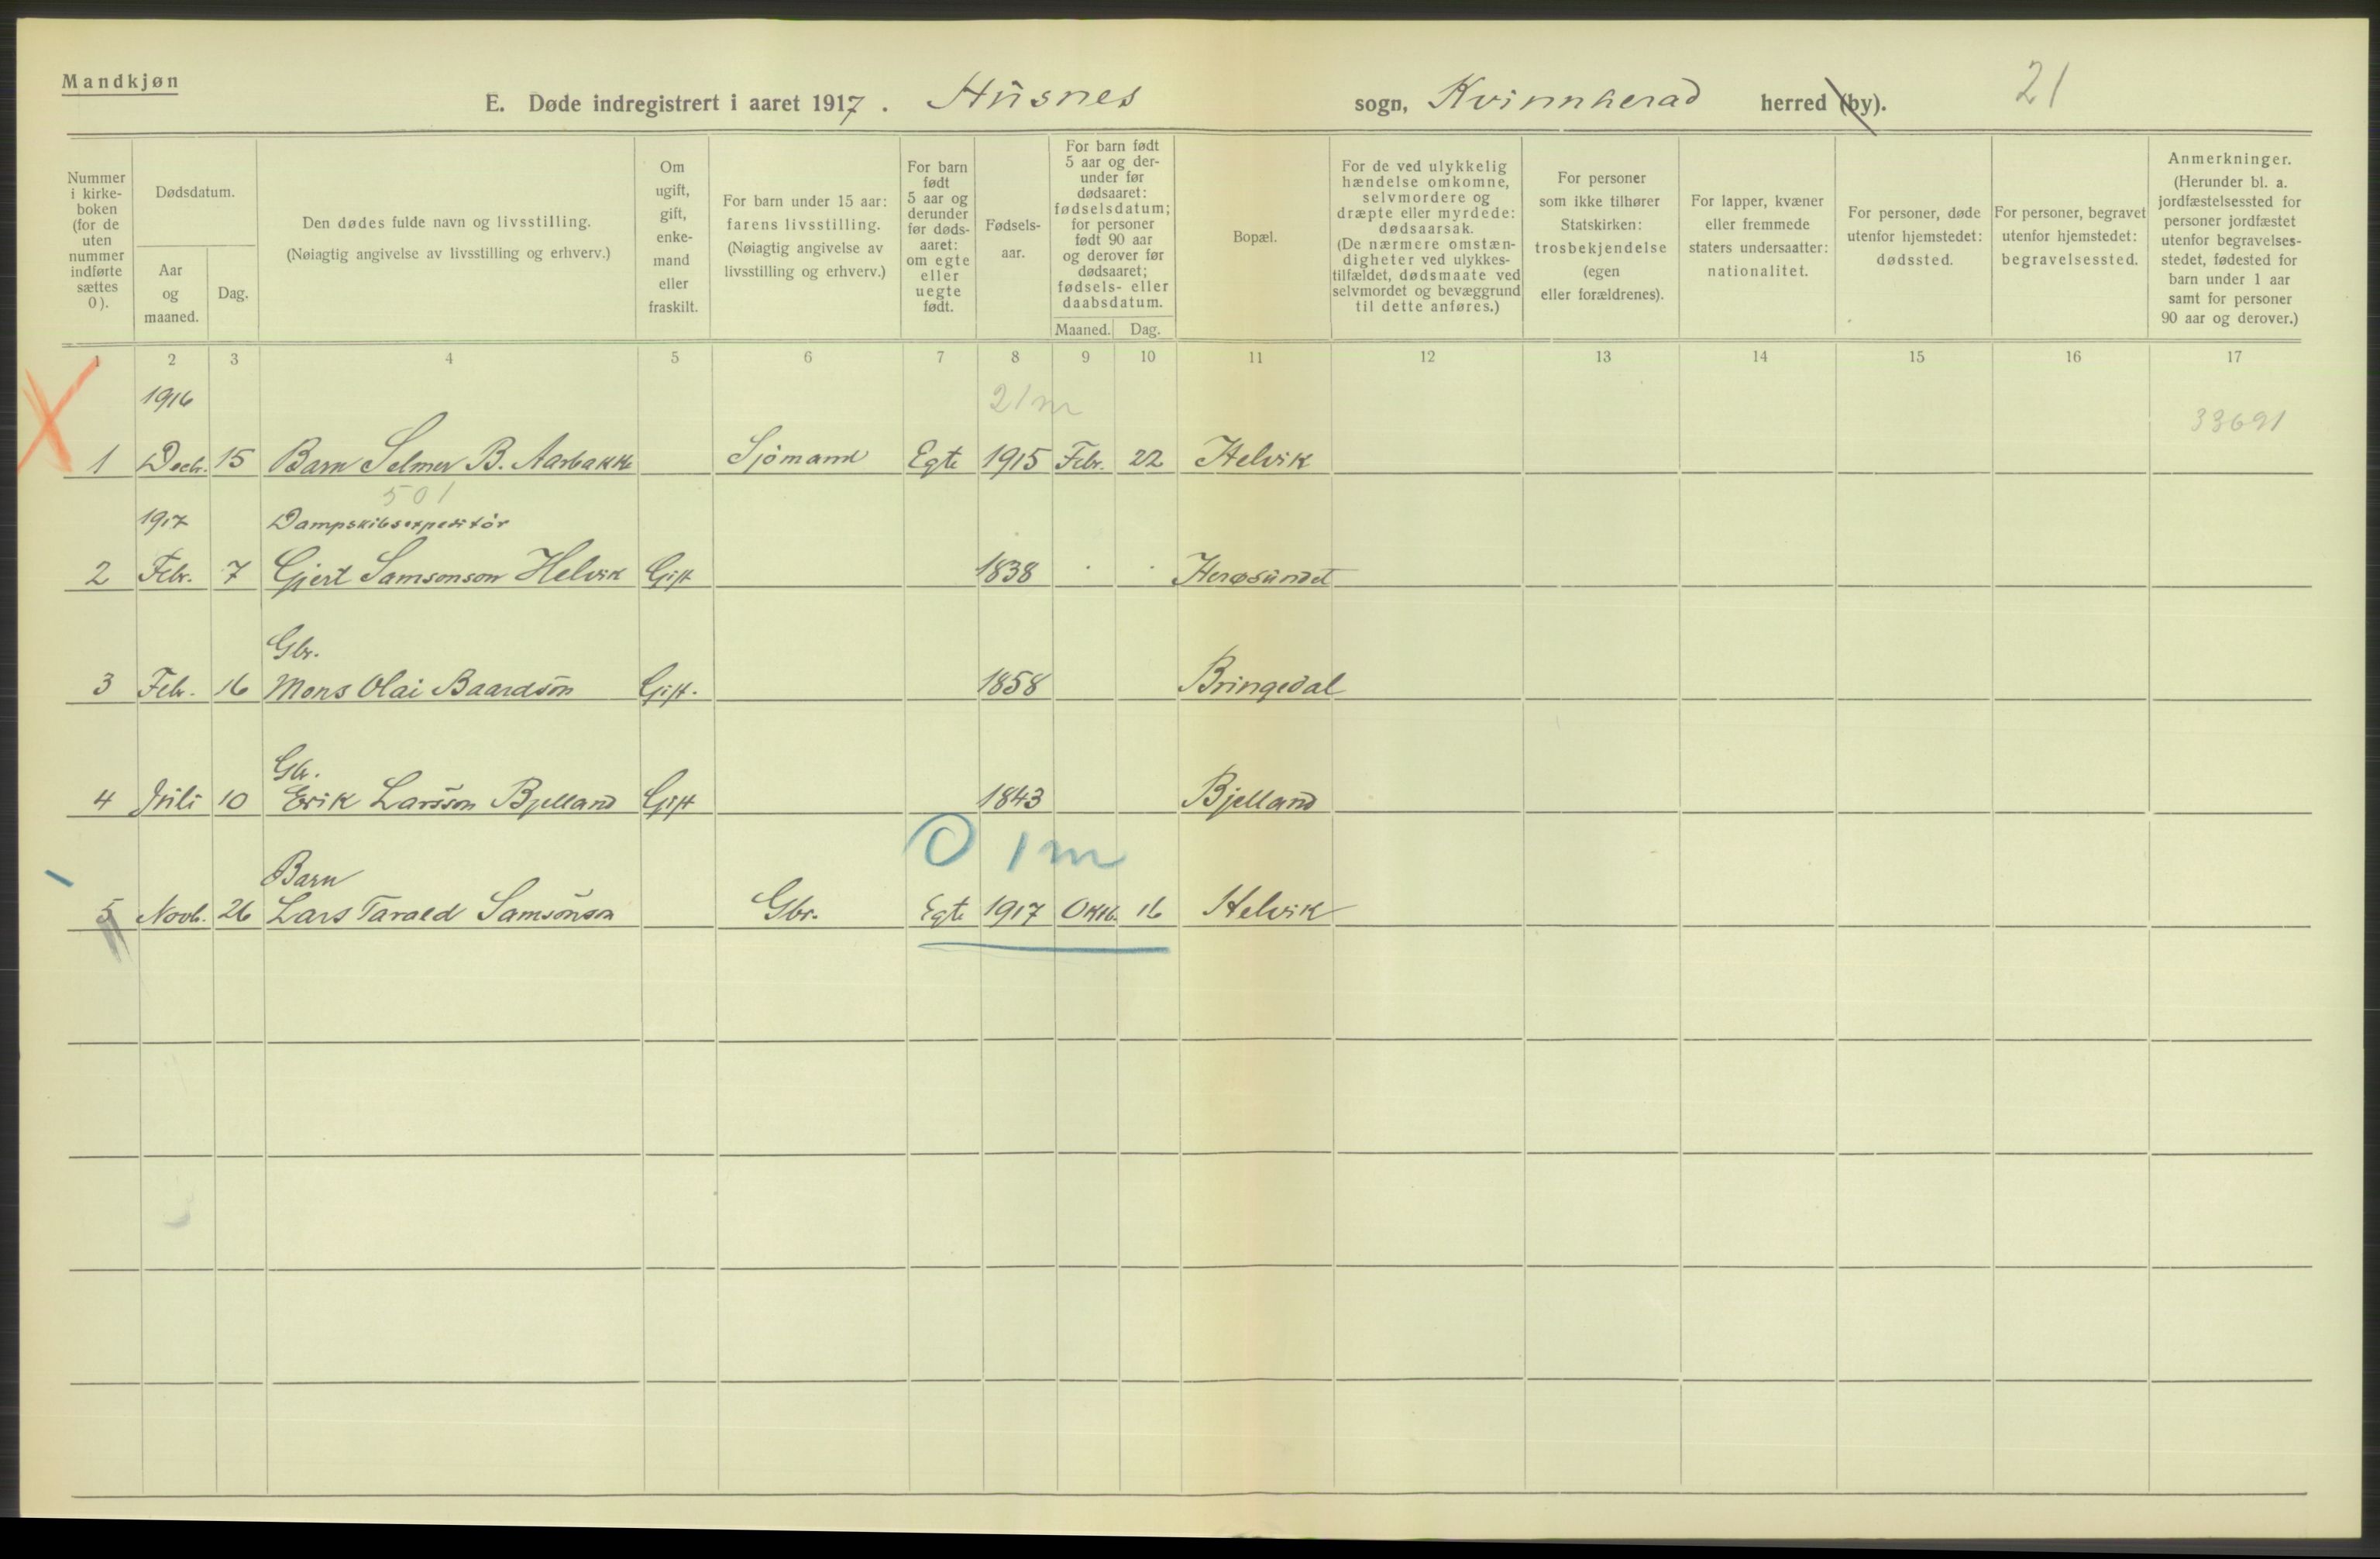 Mandkjøn
E. Døde indregistrert i aaret 1917. Husnes sogn, Kvinnherad herred (by). 21
Nummer i kirke-boken (for de uten nummer indførte sættes 0).
Dødsdatum.
Aar og maaned.
Dag.
Den dødes fulde navn og livsstilling.
(Nøiagtig angivelse av livsstilling og erhverv.)
Om ugift, gift, enke-mand eller fraskilt.
For barn under 15 aar: farens livsstilling. (Nøiagtig angivelse av livsstilling og erhverv.)
For barn født 5 aar og derunder før døds-aaret: om egte eller uegte født.
Fødsels-aar.
For barn født 5 aar og der-under før dødsaaret: fødselsdatum; for personer født 90 aar og derover før dødsaaret; fødsels- eller daabsdatum.
Maaned. Dag.
Bopæl.
For de ved ulykkelig hændelse omkomne, selvmordere og dræpte eller myrdede: dødsaarsak. (De nærmere omstæn-digheter ved ulykkes-tilfældet, dødsmaate ved selvmordet og bevæggrund til dette anføres.)
For personer som ikke tilhører Statskirken: trosbekjendelse (egen eller forældrenes).
For lapper, kvæner eller fremmede staters undersaatter: nationalitet.
For personer, døde utenfor hjemstedet: dødssted.
For personer, begravet utenfor hjemstedet: begravelsessted.
Anmerkninger. (Herunder bl. a. jordfæstelsessted for personer jordfæstet utenfor begravelses-stedet, fødested for barn under 1 aar samt for personer 90 aar og derover.)
1 2 3 4 5 6 7 8 9 10 11 12 13 14 15 16 17
1916 21 m 33691
1 Decbr. 15 Barn Selmer B. Aarbakke Sjömand Egte 1915 Febr. 22 Helvik
501
1917 Dampskibsexpeditör
2 Febr. 7 Gjert Samsonson Helvik Gift 1838 Herøsundet
Gbr.
3 Febr. 16 Mons Olai Baardson Gift. 1858 Bringedal
Gbr.
4 Juli 10 Erik Larsson Bjelland Gift 1843 Bjelland
0 1 m
Barn
5 Novb. 26 Lars Tarald Samsonson Gbr. Egte 1917 Oktb. 16 Helvik